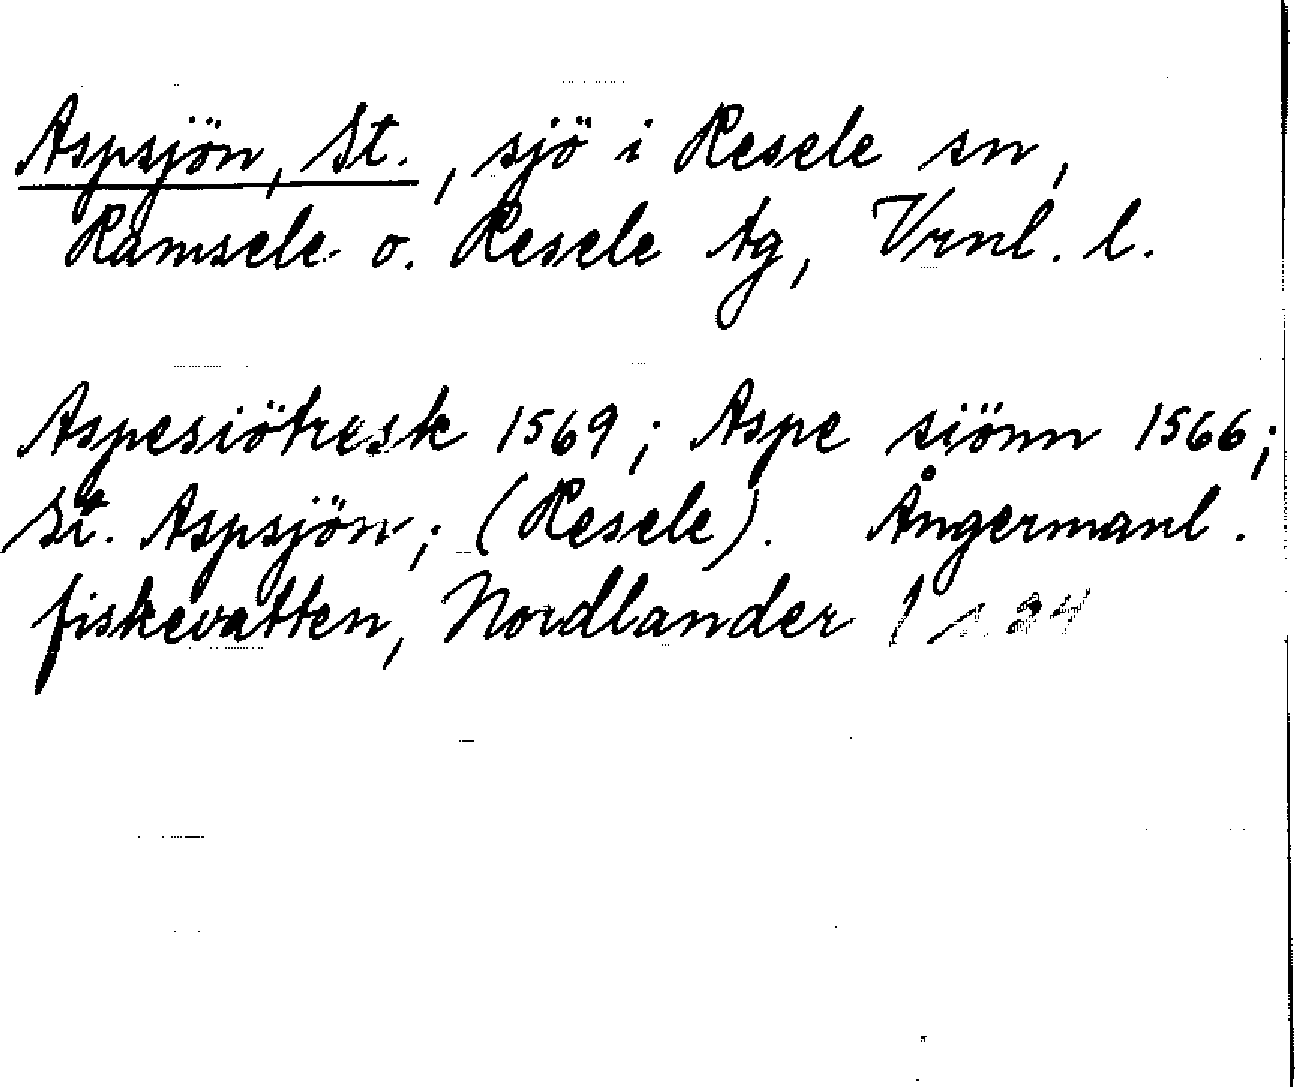 Aspsjön, St., sjö i Resele sn,
Ramsele o. Resele tg, Vrnl. l.
Aspesiötresk 1569; Aspe siönn 1566;
St. Aspsjön; (Resele). Ångermanl.
fiskevatten, Nordlander s. 24